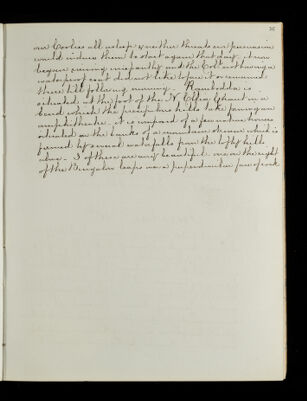 our Coolies all asleep & neither threats nor persuasion
would induce them to start again that day. it now
began raining in earnest, and the Col. not having a
waterproof coat did not like to face it so remained
there till following morning. Rambodda is
situated at the foot of the N. Ellia Ghaut in a
bend which the precipitous hills take forming an
amphitheatre. it is composed of a few native houses
situated on the banks of a mountain stream which is
formed by several waterfalls from the lofty hills
above. 3 of these are very beautiful. one on the right
of the Bungalow leaps over a perpendicular face of rock